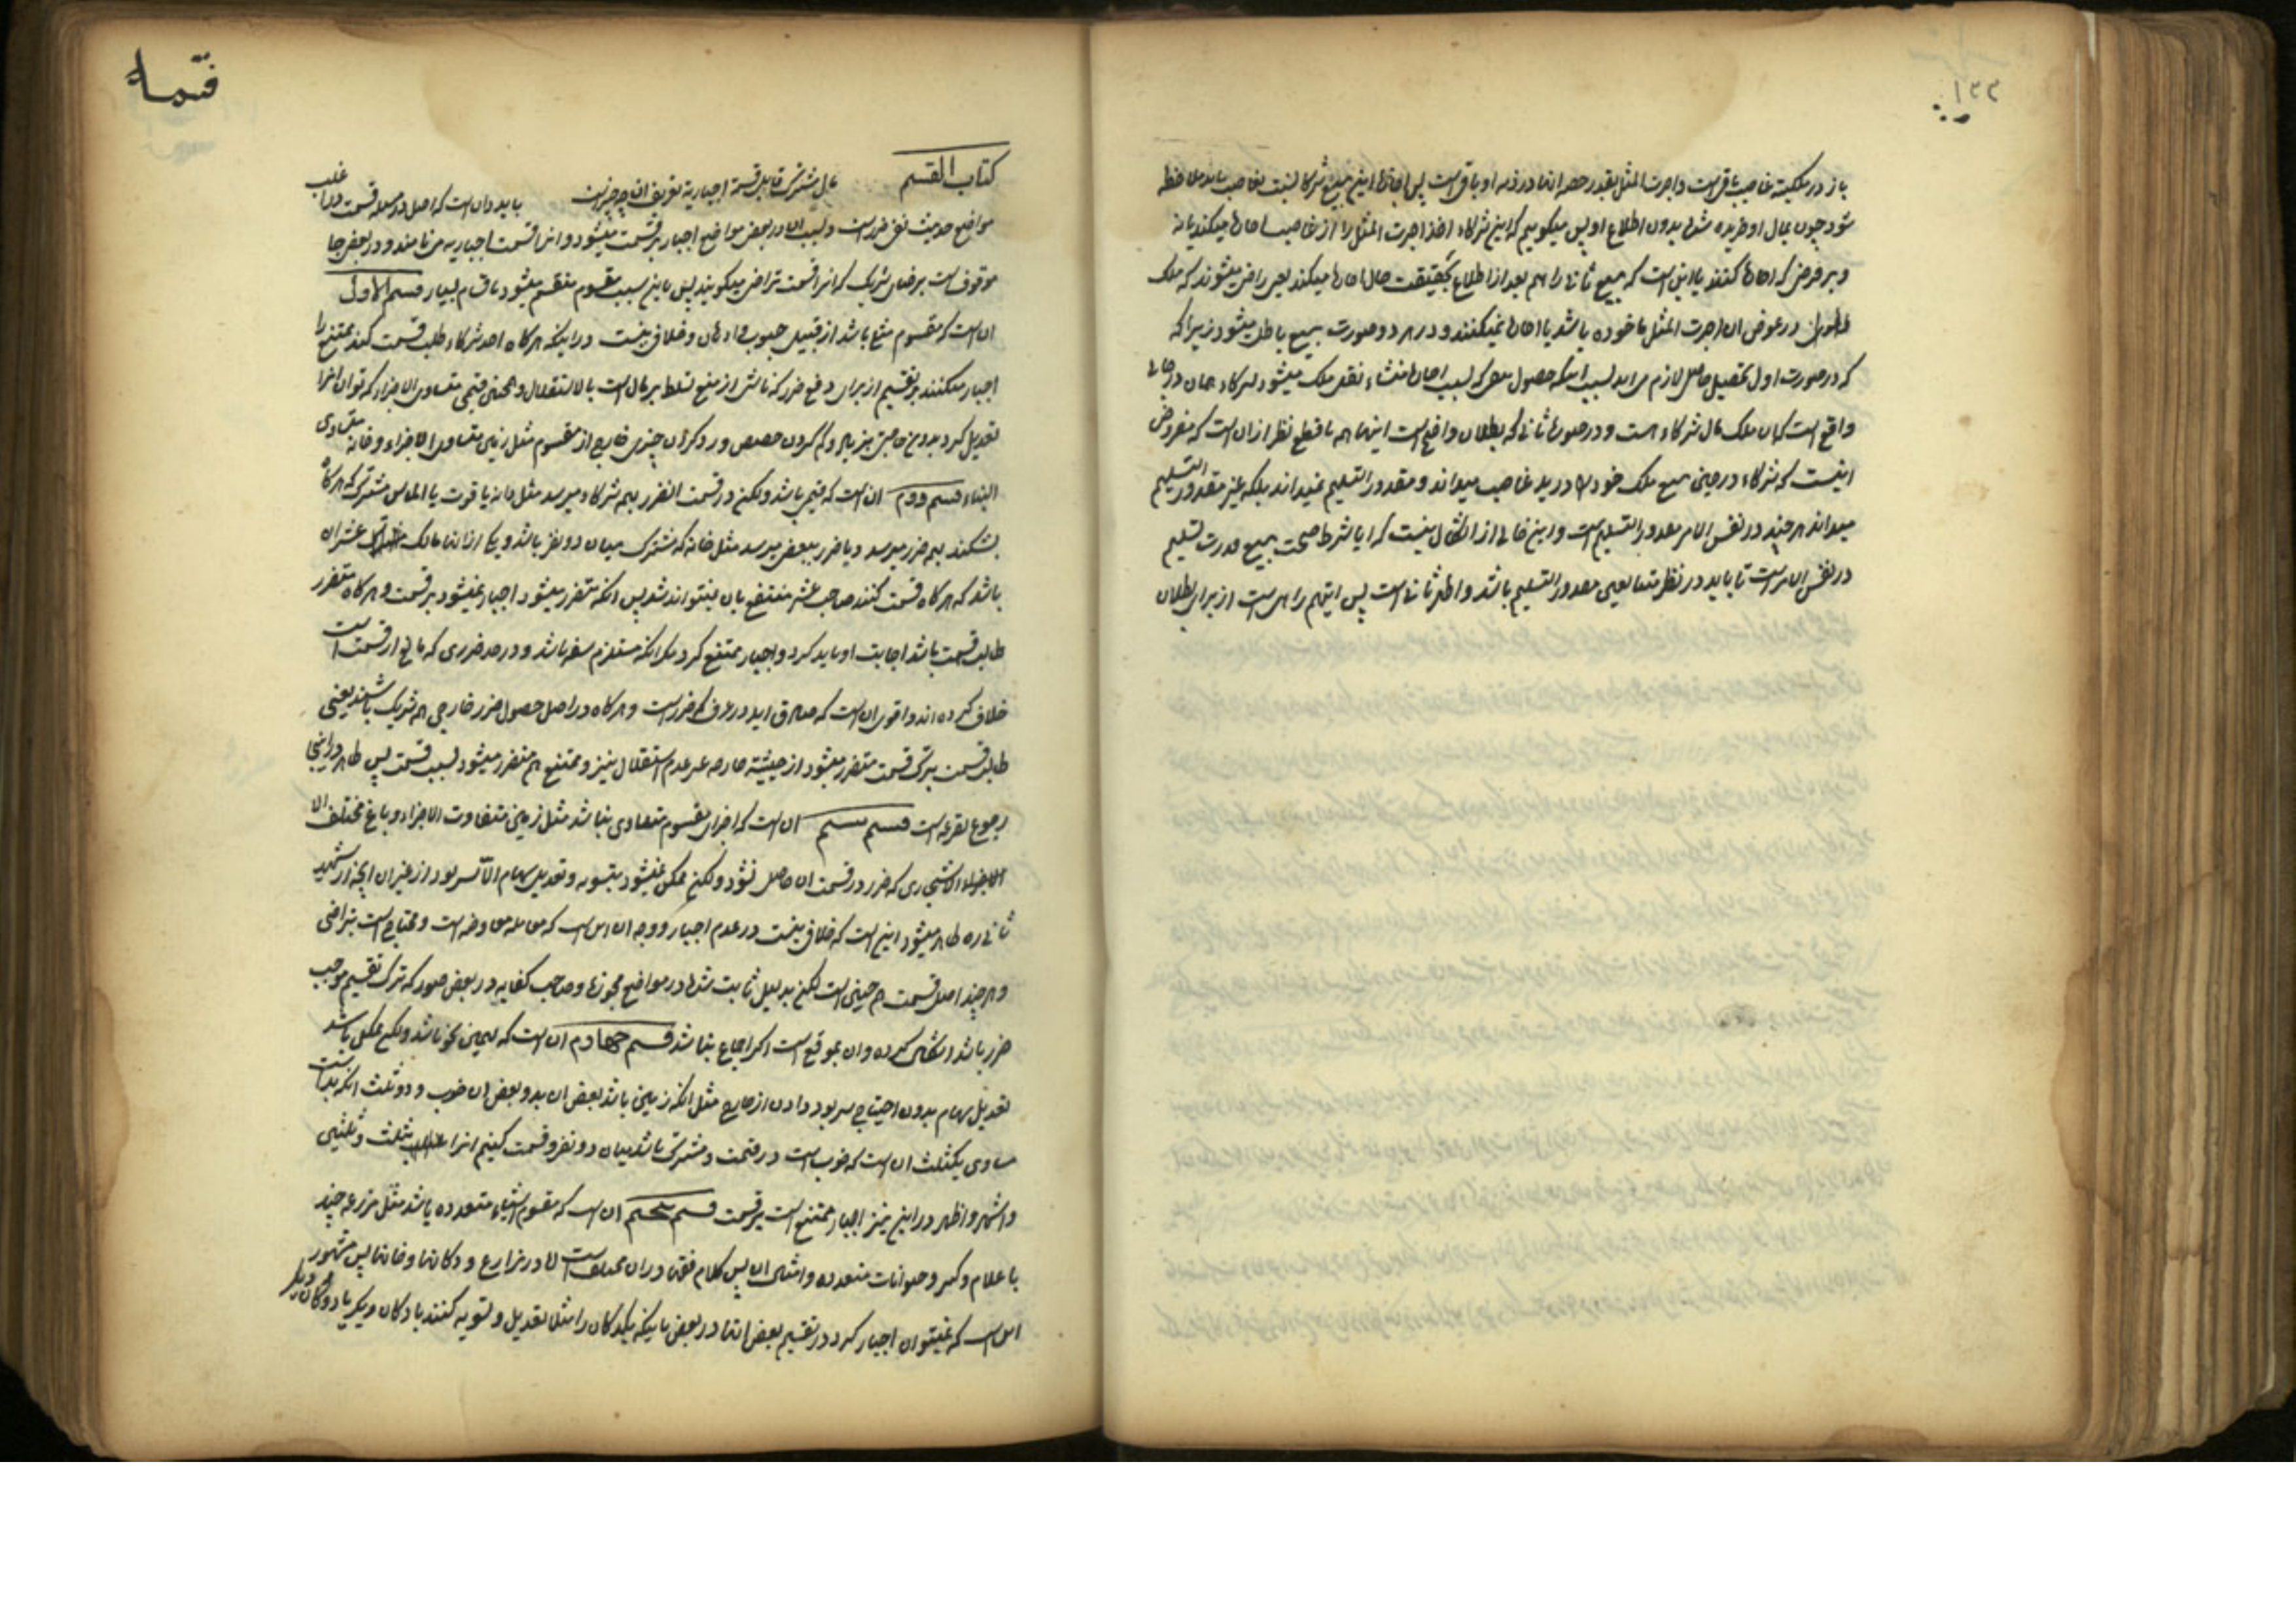 ١٢٢
باز در ملکیت غاصب باقی است و اجرت المثل بقدر حصه انها در ذمه او باقی است پس اجازه این بیع شرکا نسبت بغاصب باید ملاحظه
شود چون بمال او خریده شده بدون اطلاع او پس میگوییم که این شرکاء اخذ اجرت المثل را از غاصب امضا میکند یا نه
و بر فرض که امضا کنند یا این است که بیع ثانی را هم بعد از اطلاع بحقیقت حال امضا میکند یعنی راضی میشوند که ملک
در عوض ان اجرت المثل ماخوذه باشد یا امضا نمیکنند و در هر دو صورت بیع باطل میشود زیرا که
که در صورت اول تحصیل حاصل لازم می اید بسبب اینکه حصول بسبب امضا منشاء نقل ملک میشود بشرکاء همان در حالی
واقع است که ان ملک مال شرکاء است و در صورت ثانی که بطلان واضح است اینها همه با قطع نظر از ان است که مفروض
اینست که شرکاء در حین بیع ملک خود را در ید غاصب میداند و مقدور التسلیم نمیداند بلکه غیر مقدور التسلیم
میداند هر چند در نفس الامر مقدور التسلیم است و این خالی از اشکال نیست که ایا شرط صحت بیع قدرت تسلیم
در نفس الامر است تا باید در نظر متبایعین مقدور التسلیم باشد و اظهر ثانی است پس اینهم راهی است از برای بطلان
کتاب القسم
مال مشترک قابل قسمة اجباریه تعریف ان چه چیز است باید دانست که اصل در مسئله قسمت در اغلب
مواضع حدیث نفی ضرر است و بسبب ان در بعض مواضع اجبار بر قسمت میشود و انرا قسمت اجباریه می نامند و در بعض جا
موقوف است بر رضای شریک که انرا قسمت تراضی میگویند پس باین سبب مقسوم منقسم میشود باقسام بسیار قسم الاول
ان است که مقسوم مثلی باشد از قبیل حبوب و ادهان و خلافی نیست در اینکه هر گاه احد شرکاء طلب قسمت کند ممتنع را
اجبار میکنند بر تقسیم از برای دفع ضرر که ناشی از منع تسلط بر مال است بالاستقلال و همچنین قیمی متساوی الاجزاء که توان انرا
تعدیل کرد بدون حاجت بزیاد و کم کردن حصص و رد کردن چیزی خارج از مقسوم مثل زمین متساوی الاجزاء و خانه متساوی
البناء قسم دوم ان است که قیمی باشد و لکن در قسمت ان ضرر بهمه شرکاء میرسد مثل دانه یاقوت یا الماس مشترک که هر گاه
بشکنند بهمه ضرر میرسد و یا ضرر ببعض میرسد مثل خانه که مشترک میان دو نفر باشد و یکی از انها مالک عشر ان
باشد که هر گاه قسمت کنند صاحب عشر منتفع بان نمیتواند شد پس انکه متضرر میشود اجبار نمیشود بر قسمت و هر گاه متضرر
طالب قسمت باشد اجابت او باید کرد و اجبار ممتنع کرد مگر انکه مستلزم سفه باشد و در حد ضرری که مانع از قسمت است
خلاف کرده اند و اقوی ان است که صادق اید در عرف که ضرر است و هر گاه در اصل حصول ضرر خارجی هم شریک باشند یعنی
طالب قسمت بترک قسمت متضرر میشود از حیثیت عدم استقلال نیز و ممتنع هم متضرر میشود بسبب قسمت پس ظاهر در اینجا
رجوع بقرعه است قسم سیم ان است که اجزای مقسوم متساوی نباشد مثل زمین متفاوت الاجزاء و باغ مختلف
الاشجاری که ضرر در قسمت ان حاصل نشود و لکن ممکن نمیشود بتسویه و تعدیل سهام الا بسر بود از غیر ان انچه از شهید
ثانی ره ظاهر میشود این است که خلافی نیست در عدم اجبار و وجه ان این است که معامله معاوضه است و محتاج است بتراضی
و هر چند اصل قسمت هم چنین است لکن بدلیل ثابت شده در مواضع مجوزه و صاحب کفایه در بعض صور که ترک تقسیم موجب
ضرر باشد اشکال کرده و ان بموقع است اگر اجماع نباشد قسم چهارم ان است که بهمین نحو باشد و لکن ممکن باشد
تعدیل سهام بدون احتیاج بسر بود دادن از خارج مثل انکه زمینی باشد بعض ان بد و بعض ان خوب و دو ثلث انکه بد است
مساوی یکثلث ان است که خوب است در قیمت و مشترک باشد میان دو نفر و قسمت کنیم انرا بثلث و ثلثین
و اشهر و اظهر در این نیز اجبار ممتنع است بر قسمت قسم پنجم ان است که مقسوم اشیاء متعدده باشد مثل مزرعه چند
یا غلام و کنیز و حیوانات متعدده و امثال ان پس کلام فقها در ان مختلف است اما در مزارع و دکانها و خانها پس مشهور
این است که نمیتوان اجبار کرد در تقسیم بعض انها در بعض باینکه یکدکان را مثلا تعدیل و تسویه کنند با دکان دیگر یا دو دکان دیگر